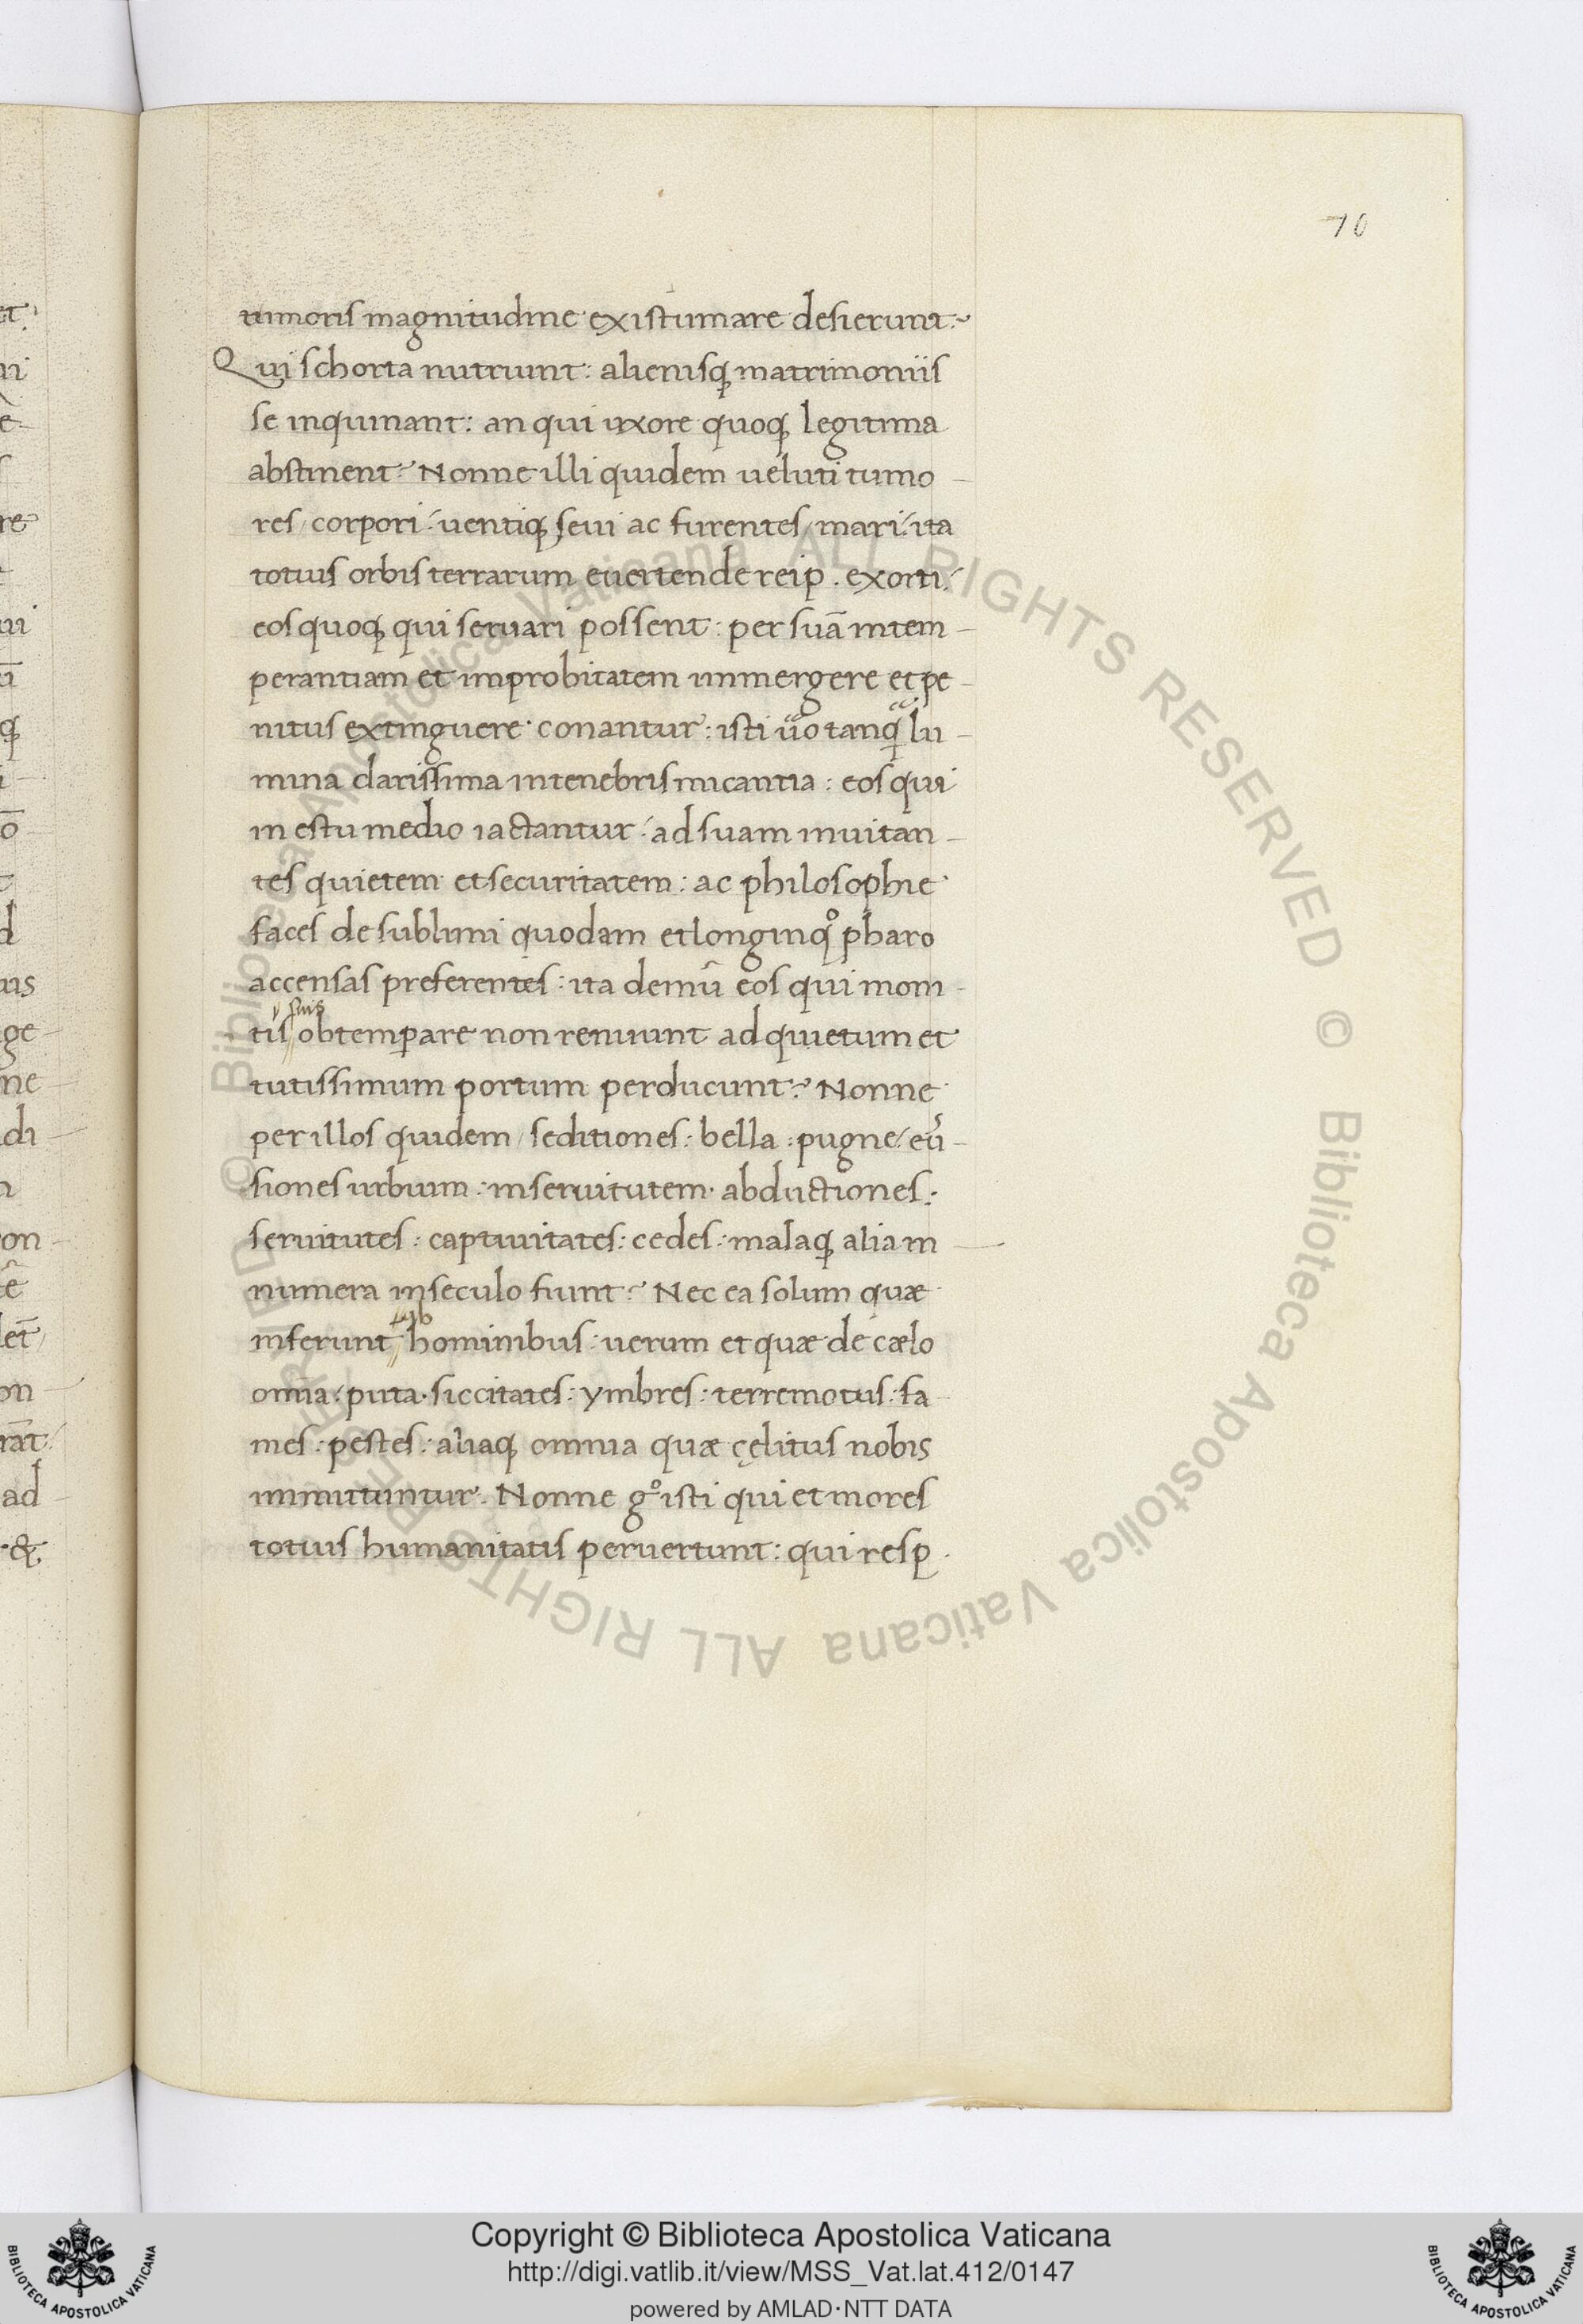 70
timoris magnitudine existumare desierunt:~
Qui schorta nutriunt: alienisq; matrimoniis
se inquinant: an qui uxore quoq; legitima
abstinent? Nonne illi quidem ueluti tumo-
res/ corpori: uentiq; seui ac furentes/ mari: ita
totius orbis terrarum euertende reip. exorti:
eos quoq; qui seruari possent: per suā intem-
perantiam et improbitatem immergere et pe-
nitus extinguere conantur: isti uͣo tanqͣ lu-
mina clarissima in tenebris micantia: eos qui
in estu medio iactantur: ad suam inuitan-
tes quietem et securitatem: ac philosophie
faces de sublimi quodam et longinqͦ pharo
accensas preferentes: ita demū eos qui moni-
tis suis obtemꝑare non renuunt ad quietum et
tutissimum portum perducunt? Nonne
per illos quidem/ seditiones: bella: pugne: eū-
siones urbium: in seruitutem abductiones:
seruitutes: captiuitates: cedes: malaq; alia in-
numera in seculo fiunt? Nec ea solum quæ
inferunt hominibus: uerum et quæ de cælo
omnia: puta siccitates: ymbres: terremotus: fa-
mes: pestes: aliaq; omnia quæ cęlitus nobis
immittuntur. Nonne gͦ isti qui et mores
totius humanitatis peruertunt: qui resp.
et
ui
re
ui
ū
q;
ō
d
uis
ge-
ne-
di-
on-
let
on
rāt
ad-
&
© Biblioteca Apostolica Vaticana ALL RIGHTS RESERVED © Biblioteca Apostolica Vaticana ALL RIGHTS RESERVED
BIBLIOTECA APOSTOLICA VATICANA
Copyright © Biblioteca Apostolica Vaticana
http://digi.vatlib.it/view/MSS_Vat.lat.412/0147
powered by AMLAD·NTT DATA
BIBLIOTECA APOSTOLICA VATICANA